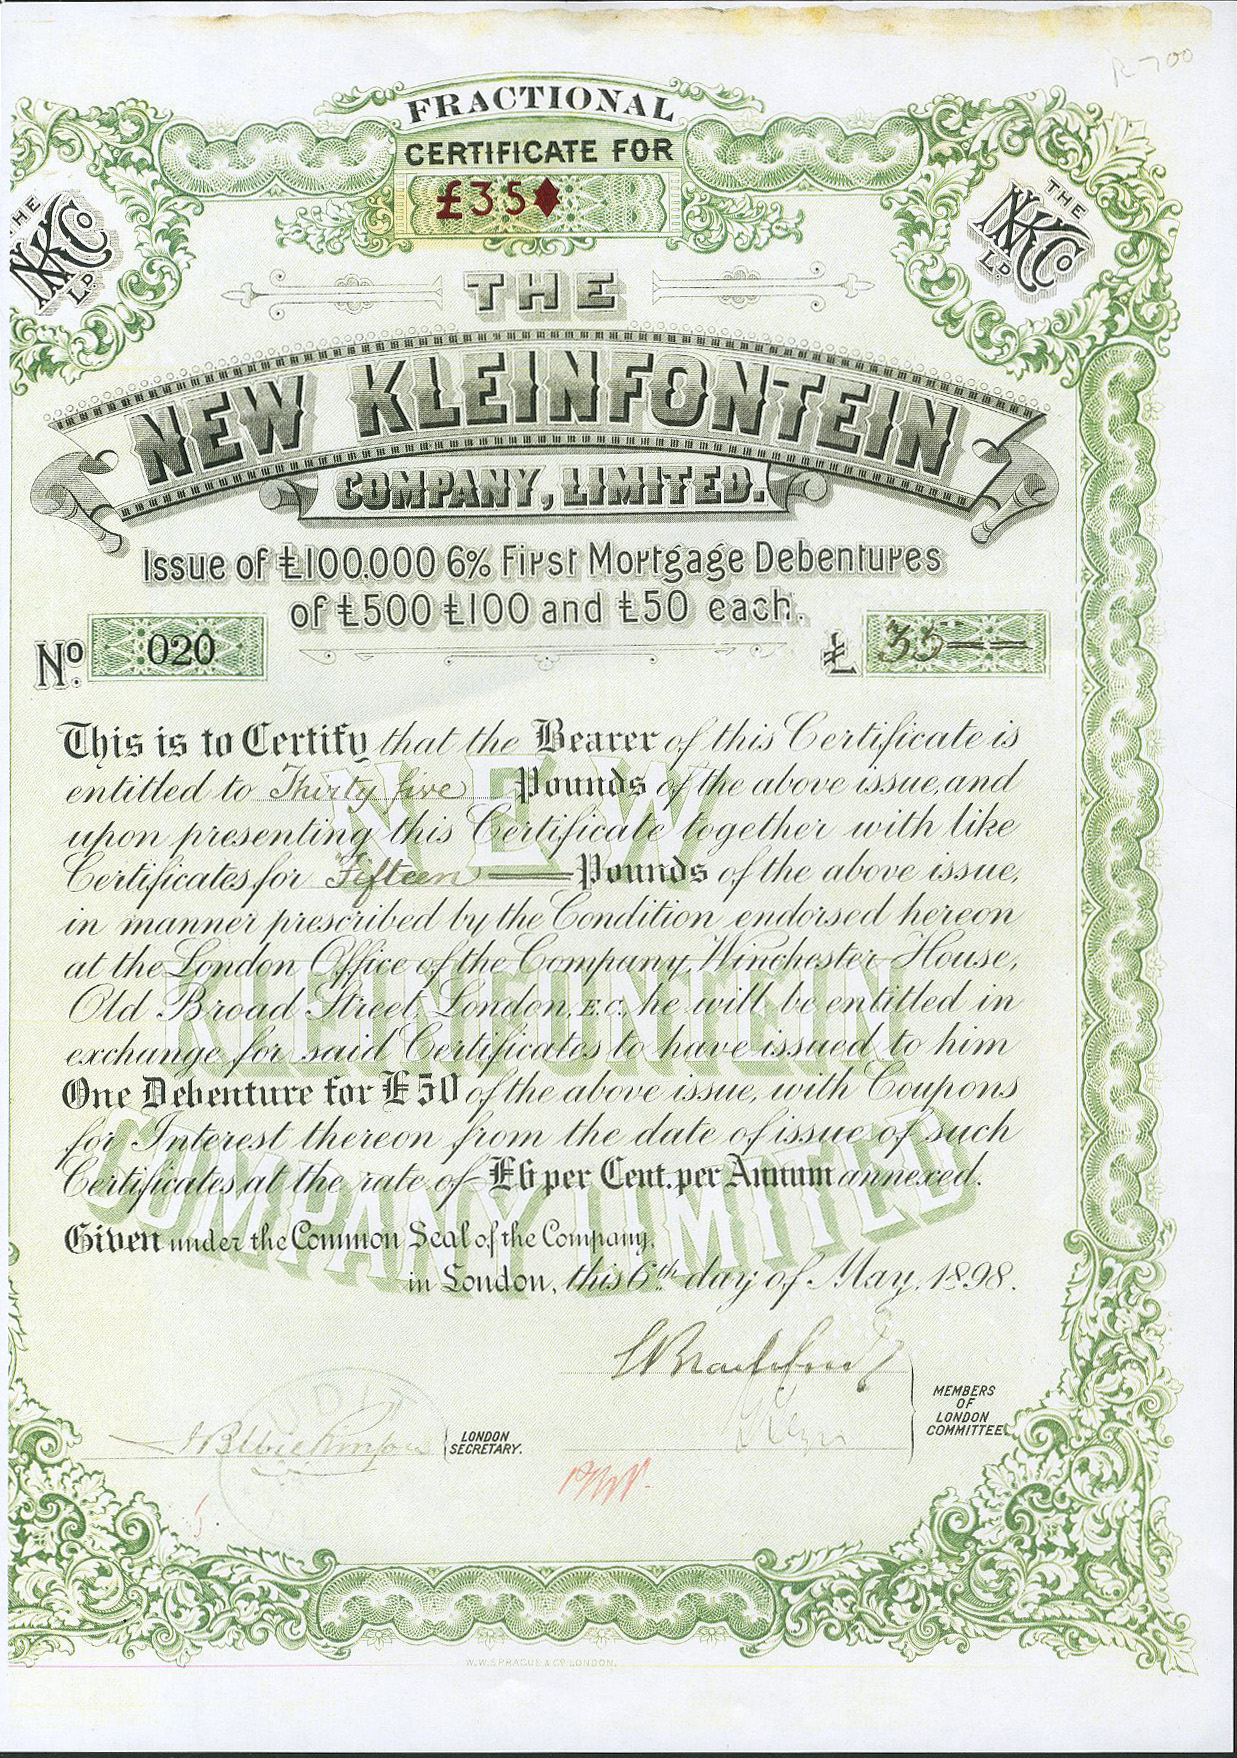 R 700
FRACTIONAL
CERTIFICATE FOR
£35
THE
NKCo
LD.
THE
NKCo
LD.
THE
NEW KLEINFONTEIN
COMPANY, LIMITED.
Issue of £100.000 6% First Mortgage Debentures
of £500 £100 and £50 each.
No. 020
£ 35
This is to Certify that the Bearer of this Certificate is
entitled to Thirty five Pounds of the above issue, and
upon presenting this Certificate together with like
Certificates for Fifteen Pounds of the above issue,
in manner prescribed by the Condition endorsed hereon
at the London Office of the Company, Winchester House,
Old Broad Street, London, E.C., he will be entitled in
exchange for said Certificates to have issued to him
One Debenture for £50 of the above issue, with Coupons
for Interest thereon from the date of issue of such
Certificates at the rate of £6 per Cent. per Annum annexed.
Given under the Common Seal of the Company,
in London, this 6th day of May, 1898.
NEW
KLEINFONTEIN
COMPANY LIMITED
MEMBERS
OF
LONDON
COMMITTEE
LONDON
SECRETARY.
W.W. SPRAGUE & Co LONDON.